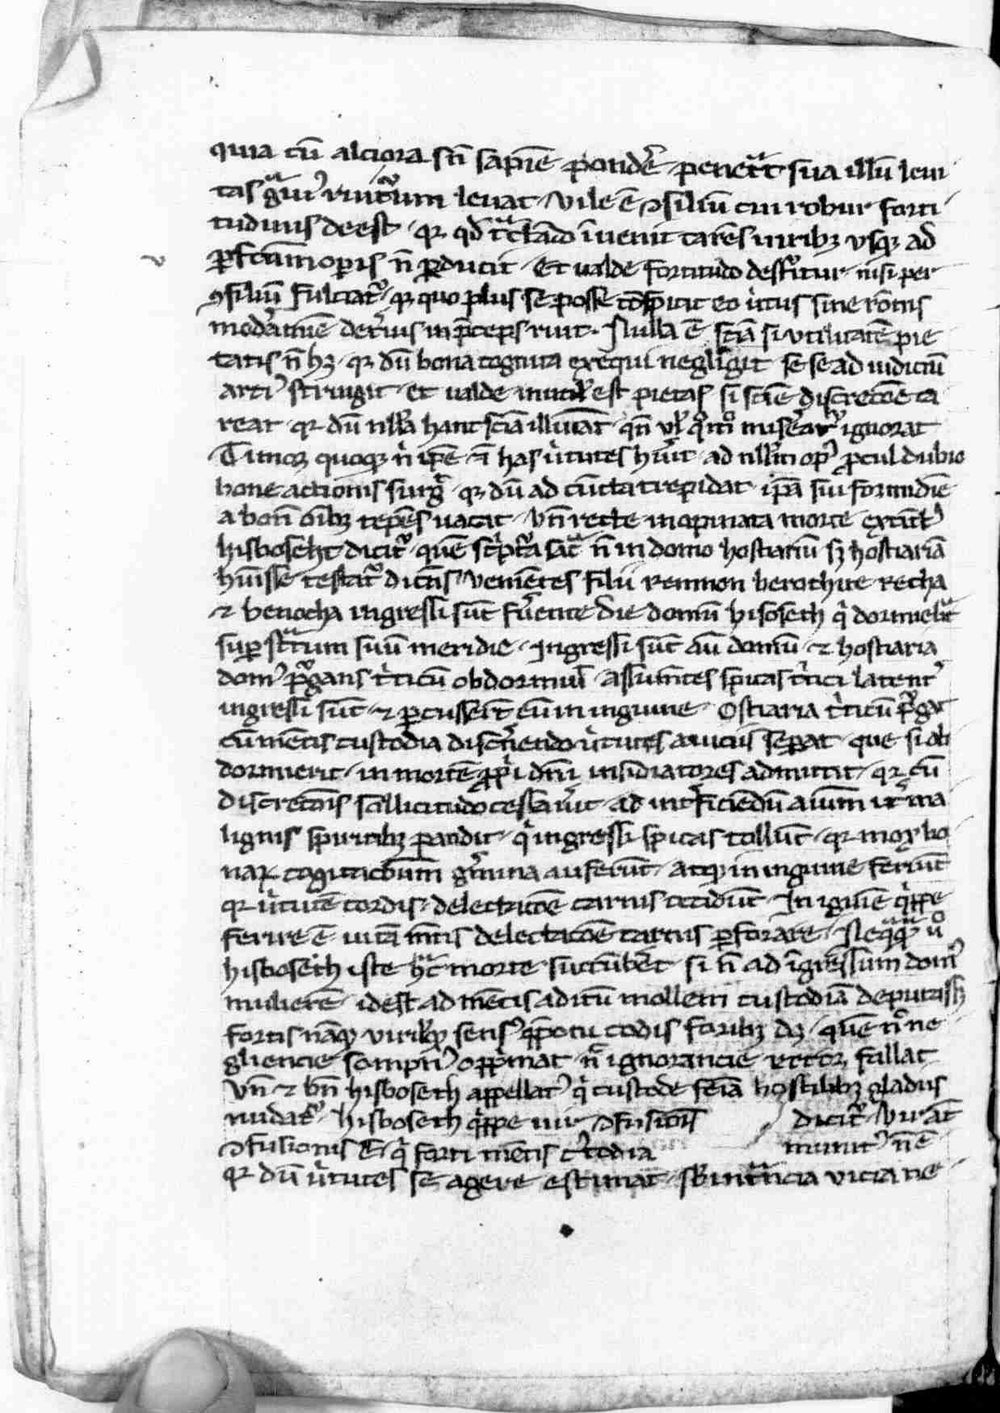 quia cū alciora sn̄ sapīe pondēr penetͣt sua illū leui
tas gͣuiꝰ ruiturum leuat vile ē ꝯsiliū cui robur forti
tudinis deest qr qd̄ tͣctando īuenit carēs uiribꝫ vsqꝫ ad
ꝑfcͨm opis n̄ ꝑducit Et ualde fortitudo destͥtur nisi per
ꝯsiliū fulciatͬ qr quo plus se posse cōspicit eo ũtus sine rōnis
modāmīe det̃ius in p̃ceps ruit Nulla ē sc̄ia si vtilitatē pie
tatis n̄ hꝫ qr dū bona cognita exequi negligit se se ad iudiciū
artiꝰ stringit et ualde inutił est pietas si scīe discrecōe ca
reat qr dū nłła hanc sc̄ia illuīat qn̄ vł qͦmͦ misēatͬ ignorat
Timor quoqꝫ ñ ip̄e ñ has ũtutes huit ad nłłm opꝰ ꝓcul dubio
bone actionis surgͥ qr dū ad cūcta trepidat ip̄a sui formidīe
a bon̄ oībꝫ tepēs uacat vn̄ recte inopinata morte extictꝰ
hisboseht dicitͬ quē scͥptͣ sacͣ n̄ in domo hostiariū sꝫ hostiariā
huisse testatͬ dicēs venientes filii remmon berothite recha
⁊ benocha ingressi sūt fuente die domū hisoseth qͥ dormiebͣt
suꝑ stͣtum suū meridie ingressi sūt aū domū ⁊ hostiaria
domꝰ pͬgans tͥticū obdormiuͥ assumētes spicas tͥtici latentͬ
ingressi sūt ⁊ ꝑcusseīt eū in inguine Ostiaria tͥticū pͬgat
cū mētis custodia discͥnendo ũtutes a uiciis sepat que si ob
dormierit in mortē ꝓpͥi dn̄i insidiatores admittit qr cū
discrecōis sollicitudo cessauit ad intͥficiendū aīum itͥ ma
lignis spiritibꝫ pandit qͥ ingressi spicas tollūt qr mox bo
naꝝ cogitacōnum gͥmina auferūt atqꝫ in inguine feriūt
qr ũtutē cordis delectacōe carnis occidūt In iguīe qͥppe
ferire ē uitā mētis delectacōe carnis ꝑforare Neqͣqͣ ūͦ
hisboseth iste hͣc morte succūbet si n̄ ad īgressum domꝰ
mulierē idest ad mētis aditū mollem custodiā deputasꝫ
fortis nāqꝫ viriłqꝫ sensꝰ
gliencie sompnꝰ opp̃mat n̄ ignorancie error fallat
vn̄ ⁊ bn̄ hisboseth appellatͬ qͥ custode feīa hostilibꝫ gladiis
nudatͬ hisboseth qͥppe uir ꝯfusiōis dicitͬ Vir aūt
ꝯfusionis ē qͥ forti mētis custodia munitꝰ n̄ ē
qr dū ũtutes se agere estimat sbintͣncia vicia ne